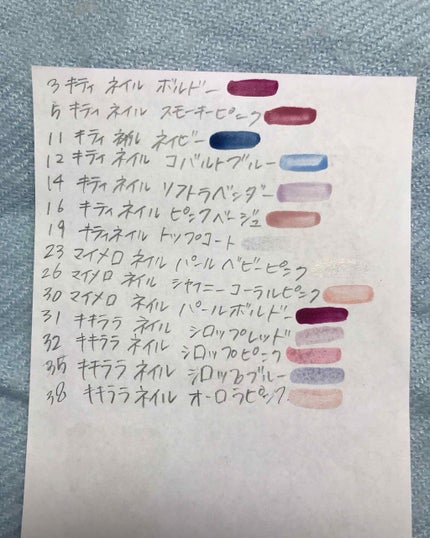 3 キティ ネイル ボルドー
5 キティ ネイル スモーキーピンク
11 キティ ネイル ネイビー
12 キティ ネイル コバルトブルー
14 キティ ネイル ソフトラベンダー
16 キティ ネイル ピンクベージュ
19 キティネイル トップコート
23 マイメロ ネイル パール ベビーピンク
26 マイメロ ネイル シャイニーコーラルピンク
30 マイメロ ネイル パールボルドー
31 キキララ ネイル シロップレッド
32 キキララ ネイル シロップピンク
35 キキララ ネイル シロップブルー
38 キキララ ネイル オーロラピンク